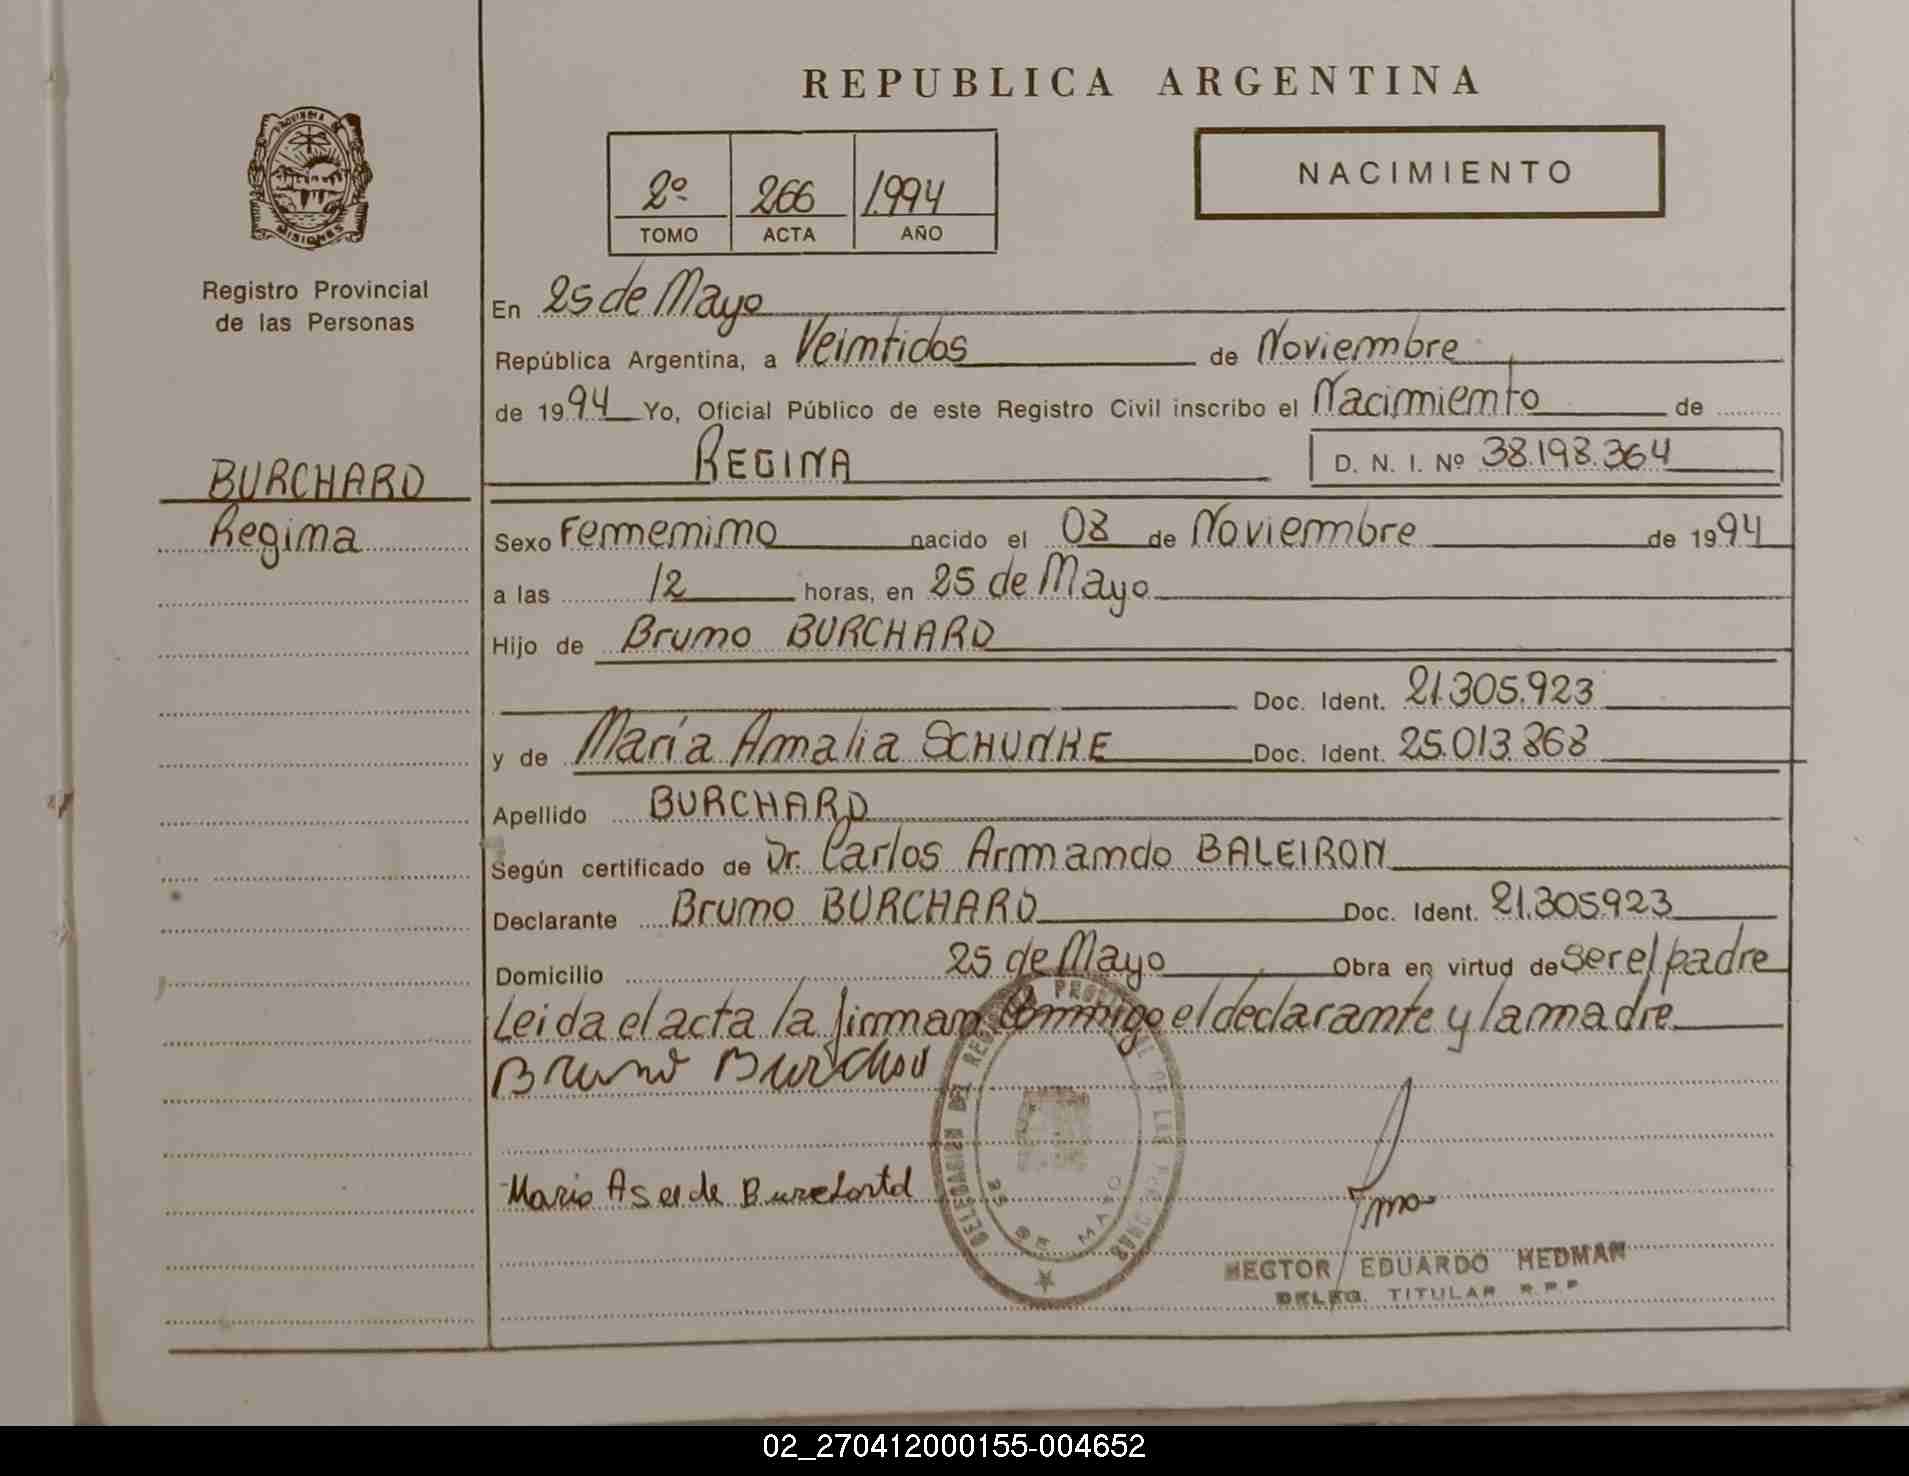 REPUBLICA ARGENTINA
PROVINCIA DE MISIONES
2º 266 1994
TOMO ACTA AÑO
NACIMIENTO
Registro Provincial
de las Personas
En 25 de Mayo
República Argentina, a Veintidos de Noviembre
de 1994 Yo, Oficial Público de este Registro Civil inscribo el Nacimiento de
REGINA D. N. I. Nº 38.198.364
BURCHARD
Regina
Sexo Femenino nacido el 08 de Noviembre de 1994
a las 12 horas, en 25 de Mayo
Hijo de Bruno BURCHARD
Doc. Ident. 21.305.923
y de María Amalia SCHUNKE Doc. Ident. 25.013.868
Apellido BURCHARD
Según certificado de Dr. Carlos Armando BALEIRON
Declarante Bruno BURCHARD Doc. Ident. 21.305923
Domicilio 25 de Mayo Obra en virtud de ser el padre
Leida el acta la firman conmigo el declarante y la madre
Bruno Burchard
Maria de
DELEGACION DEL REGISTRO PROVINCIAL DE LAS PERSONAS
25 DE MAYO
HECTOR EDUARDO HEDMAN
DELEG. TITULAR R.P.P
02_270412000155-004652